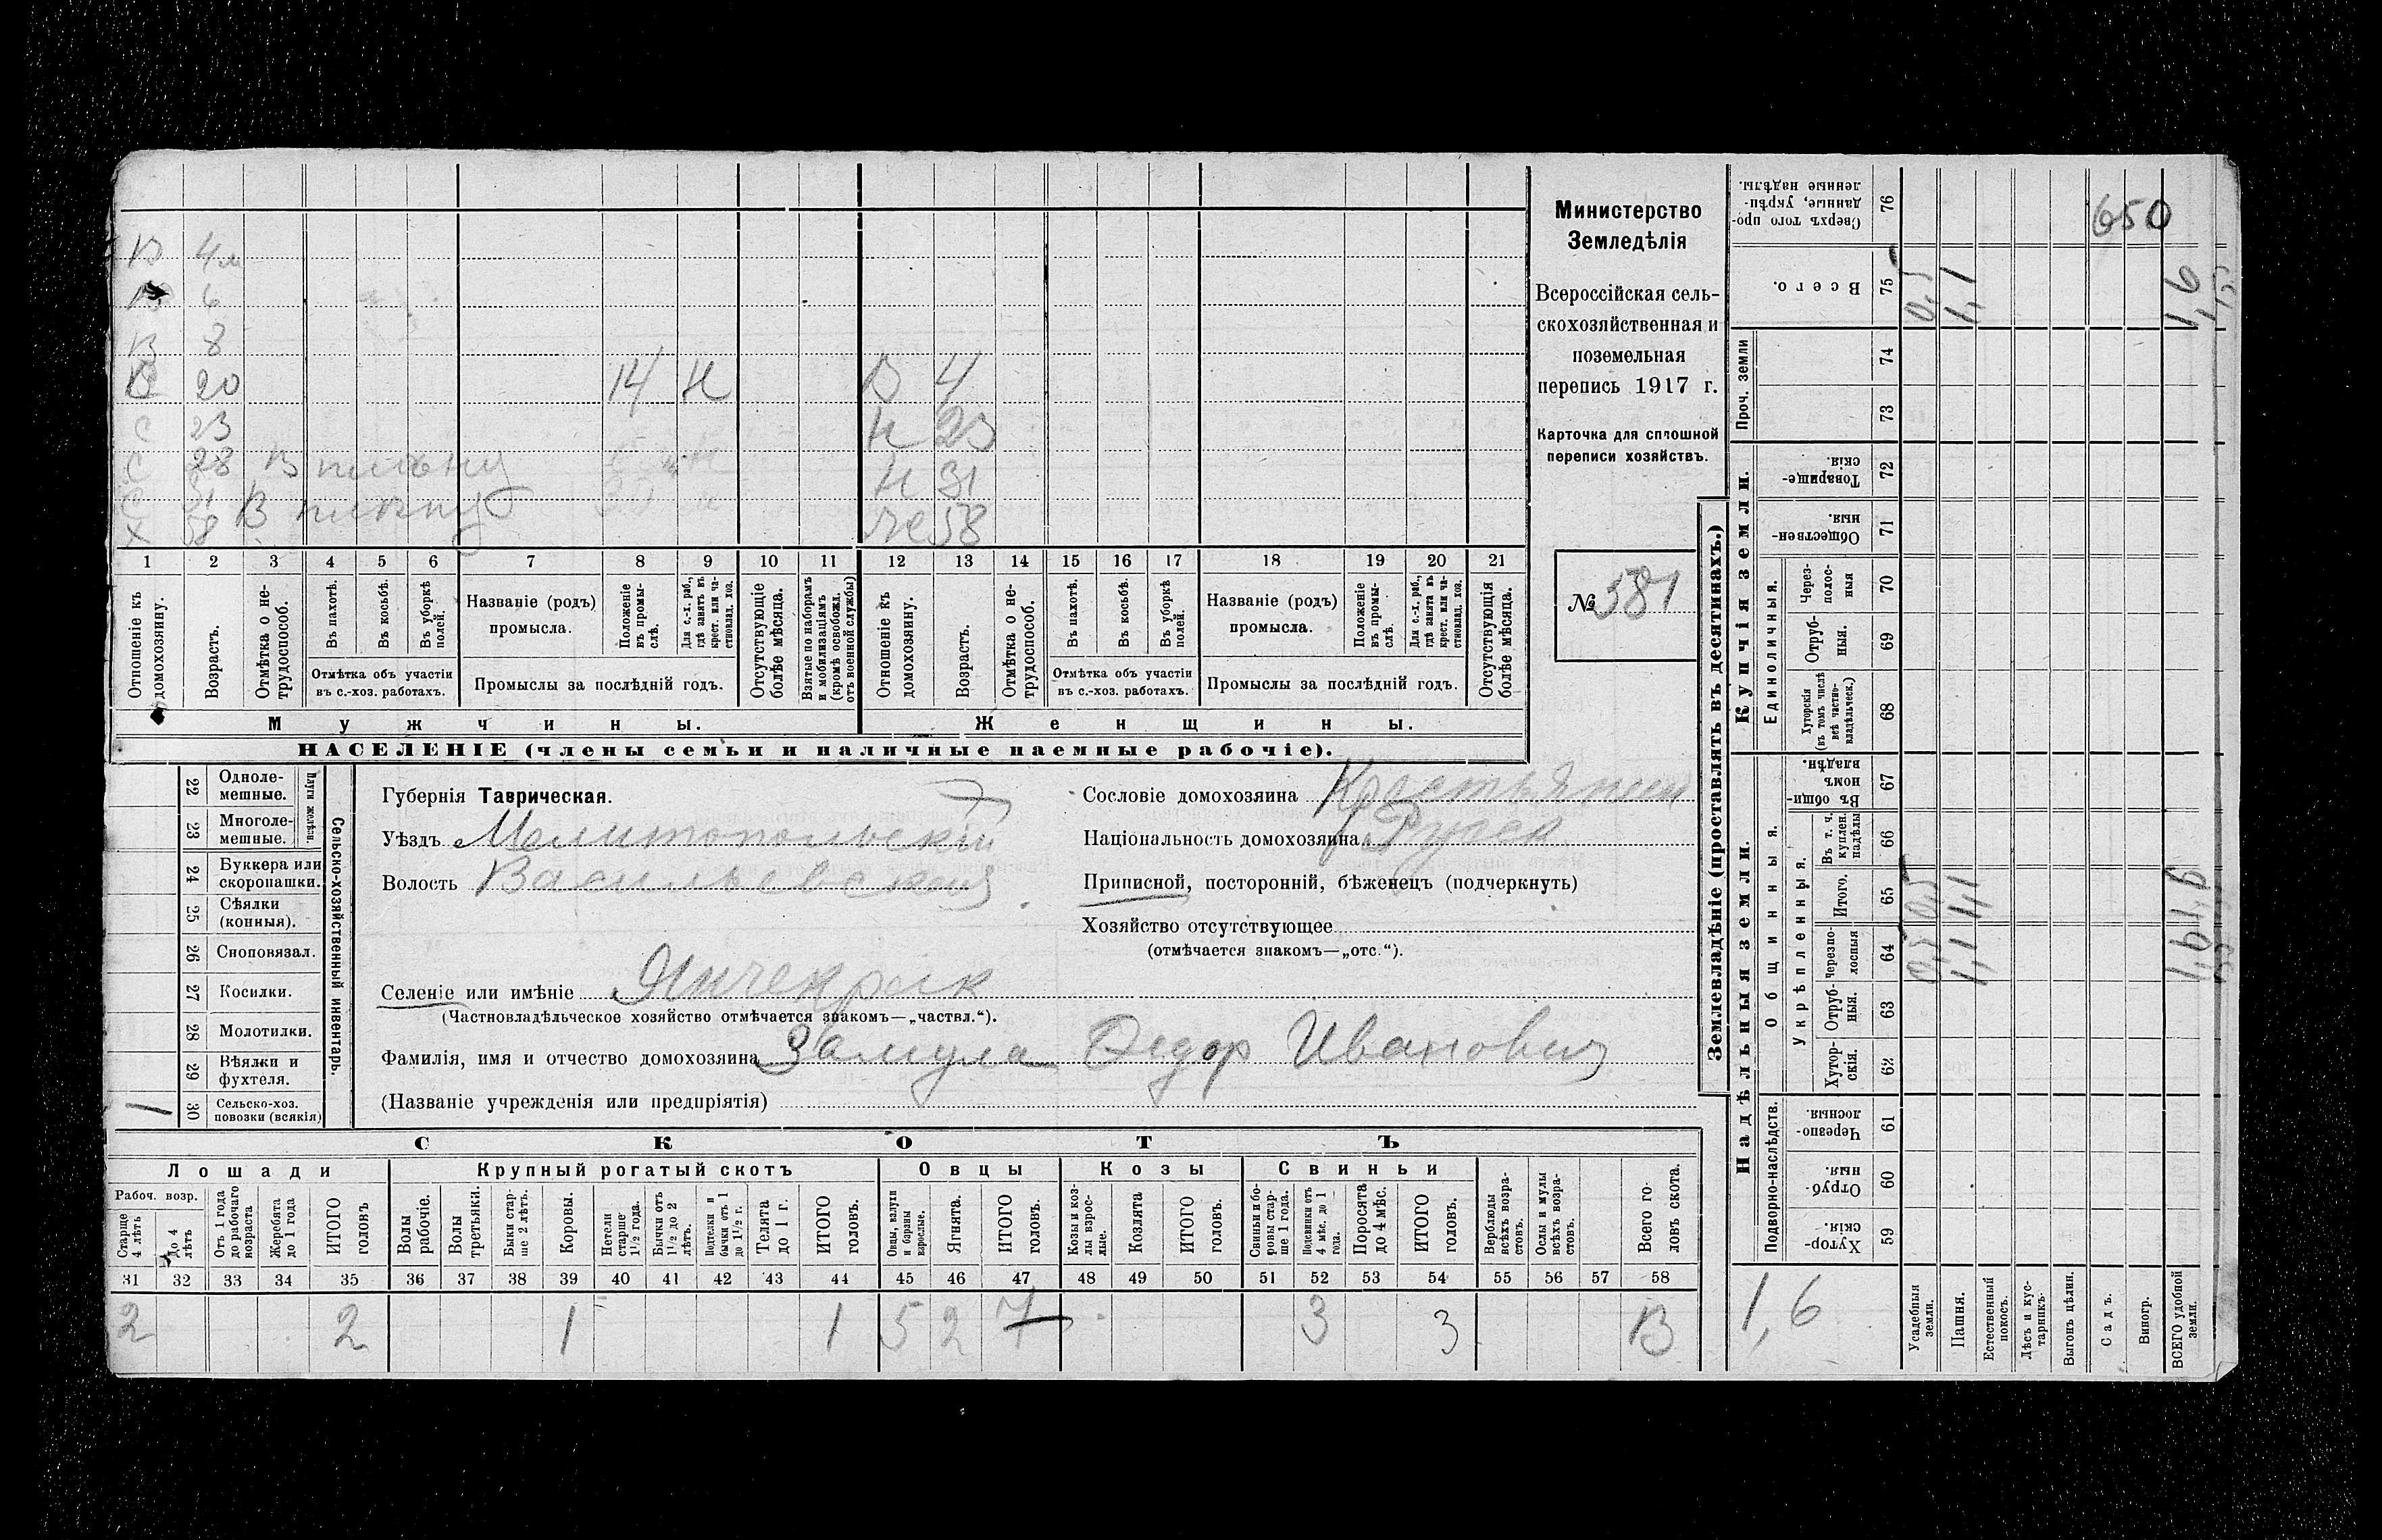 В 4 м
В 6
В 8
В 20 14 Н В 4
С 23 Н 23
С 28 В плену Н 31
С 31 В плену
Х 58 Же 58
1 2 3 4 5 6 7 8 9 10 11 12 13 14 15 16 17 18 19 20 21
Отношеніе къ домохозяину.
Возрастъ.
Отмѣтка о не-
трудоспособ.
Въ пахотѣ.
Въ косьбѣ.
Въ уборкѣ полей.
Отмѣтка объ участіи
въ с.-хоз. работахъ.
Названіе (родъ)
промысла.
Положеніе
въ промы-
слѣ.
Для с.-х. раб.,
гдѣ занятъ въ
крест. или ча-
стновлад. хоз.
Промыслы за послѣдній годъ.
Отсутствующіе
болѣе мѣсяца.
Взятые по наборамъ
и мобилизаціямъ
(кромѣ освобожд.
отъ военной службы)
Отношеніе къ
домохозяину.
Возрастъ.
Отмѣтка о не-
трудоспособ.
Въ пахотѣ.
Въ косьбѣ.
Въ уборкѣ
полей.
Отмѣтка объ участіи
въ с.-хоз. работахъ.
Названіе (родъ)
промысла.
Положеніе
въ промы-
слѣ.
Для с.-х. раб.,
гдѣ занята въ
крест. или ча-
стновлад. хоз.
Промыслы за послѣдній годъ.
Отсутствующія
болѣе мѣсяца.
Мужчины.
Женщины.
НАСЕЛЕНІЕ (члены семьи и наличные наемные рабочіе).
Министерство
Земледѣлія
Всероссійская сель-
скохозяйственная и
поземельная
перепись 1917 г.
Карточка для сплошной
переписи хозяйствъ.
№ 381
22 Одноле-
мешные.
23 Многоле-
мешные.
Плуги желѣзн.
24 Буккера или
скоропашки.
25 Сѣялки
(конныя).
26 Сноповязал.
27 Косилки.
28 Молотилки.
29 Вѣялки и
фухтеля.
1 30 Сельско-хоз.
повозки (всякія)
Сельско-хозяйственный инвентарь.
Губернія Таврическая.
7
Уѣздъ Мелитопольскій
Волость Васильевская
Сословіе домохозяина Крестьянин
Національность домохозяина Русск
Приписной, посторонній, бѣженецъ (подчеркнуть)
Хозяйство отсутствующее
(отмѣчается знакомъ—„отс.“).
Селеніе или имѣніе Янчекрак
(Частновладѣльческое хозяйство отмѣчается знакомъ—„частвл.“).
Фамилія, имя и отчество домохозяина Замула Федор Иванович
(Названіе учрежденія или предпріятія)
СКОТЪ
Лошади
Крупный рогатый скотъ
Овцы
Козы
Свиньи
Рабоч. возр.
Старше
4 лѣтъ
до 4
лѣтъ
Отъ 1 года
до рабочаго
возраста
Жеребята
до 1 года
ИТОГО
головъ
Волы
рабочіе.
Волы
третьяки.
Быки стар-
ше 2 лѣтъ.
Коровы.
Нетели
старше
1½ года.
Бычки отъ
1½ до 2
лѣтъ.
Подтелки и
бычки отъ 1
до 1½ г.
Телята
до 1 г.
ИТОГО
головъ.
Овцы, валухи
и бараны
взрослые.
Ягнята.
ИТОГО
головъ.
Козы и коз-
лы взрос-
лые.
Козлята
ИТОГО
головъ.
Свиньи и бо-
ровы стар-
ше 1 года.
Подсвинки отъ
4 мѣс. до 1
года.
Поросята
до 4 мѣс.
ИТОГО
головъ.
Верблюды
всѣхъ возра-
стовъ.
Ослы и мулы
всѣхъ возра-
стовъ.
Всего го-
ловъ скота.
31 32 33 34 35 36 37 38 39 40 41 42 43 44 45 46 47 48 49 50 51 52 53 54 55 56 57 58
2 2 1 1 5 2 7 3 3 13
Землевладѣніе (проставлять въ десятинахъ.)
Купчія земли.
Надѣльныя земли.
Проч. земли
Единоличныя.
Общинныя.
Укрѣпленныя.
Подворно-наслѣдств.
Сверхъ того про-
данные, укрѣп-
ленные надѣлы.
76
650
Всего.
75
0,5
1,1
1,6
74
73
Товарище-
скія.
72
Обществен-
ныя.
71
Через-
полос-
ныя
70
Отруб-
ныя.
69
Хуторскія
(въ томъ числѣ
всѣ частно-
владѣльческ.)
68
Въ общи-
номъ
владѣн.
67
Въ т. ч.
куплен.
надѣлы
66
Итого.
65
0,5
1,1
1,6
Черезпо-
лосныя
64
0,5
1,1
1,6
Отруб-
ныя.
63
Хутор-
скія.
62
Черезпо-
лосныя.
61
Отруб-
ныя.
60
Хутор-
скія.
59
1,6
Усадебныя
земли.
Пашня.
Естественный
покосъ.
Лѣсъ и кус-
тарникъ.
Выгонъ цѣлин.
Садъ.
Виногр.
ВСЕГО удобной
земли.